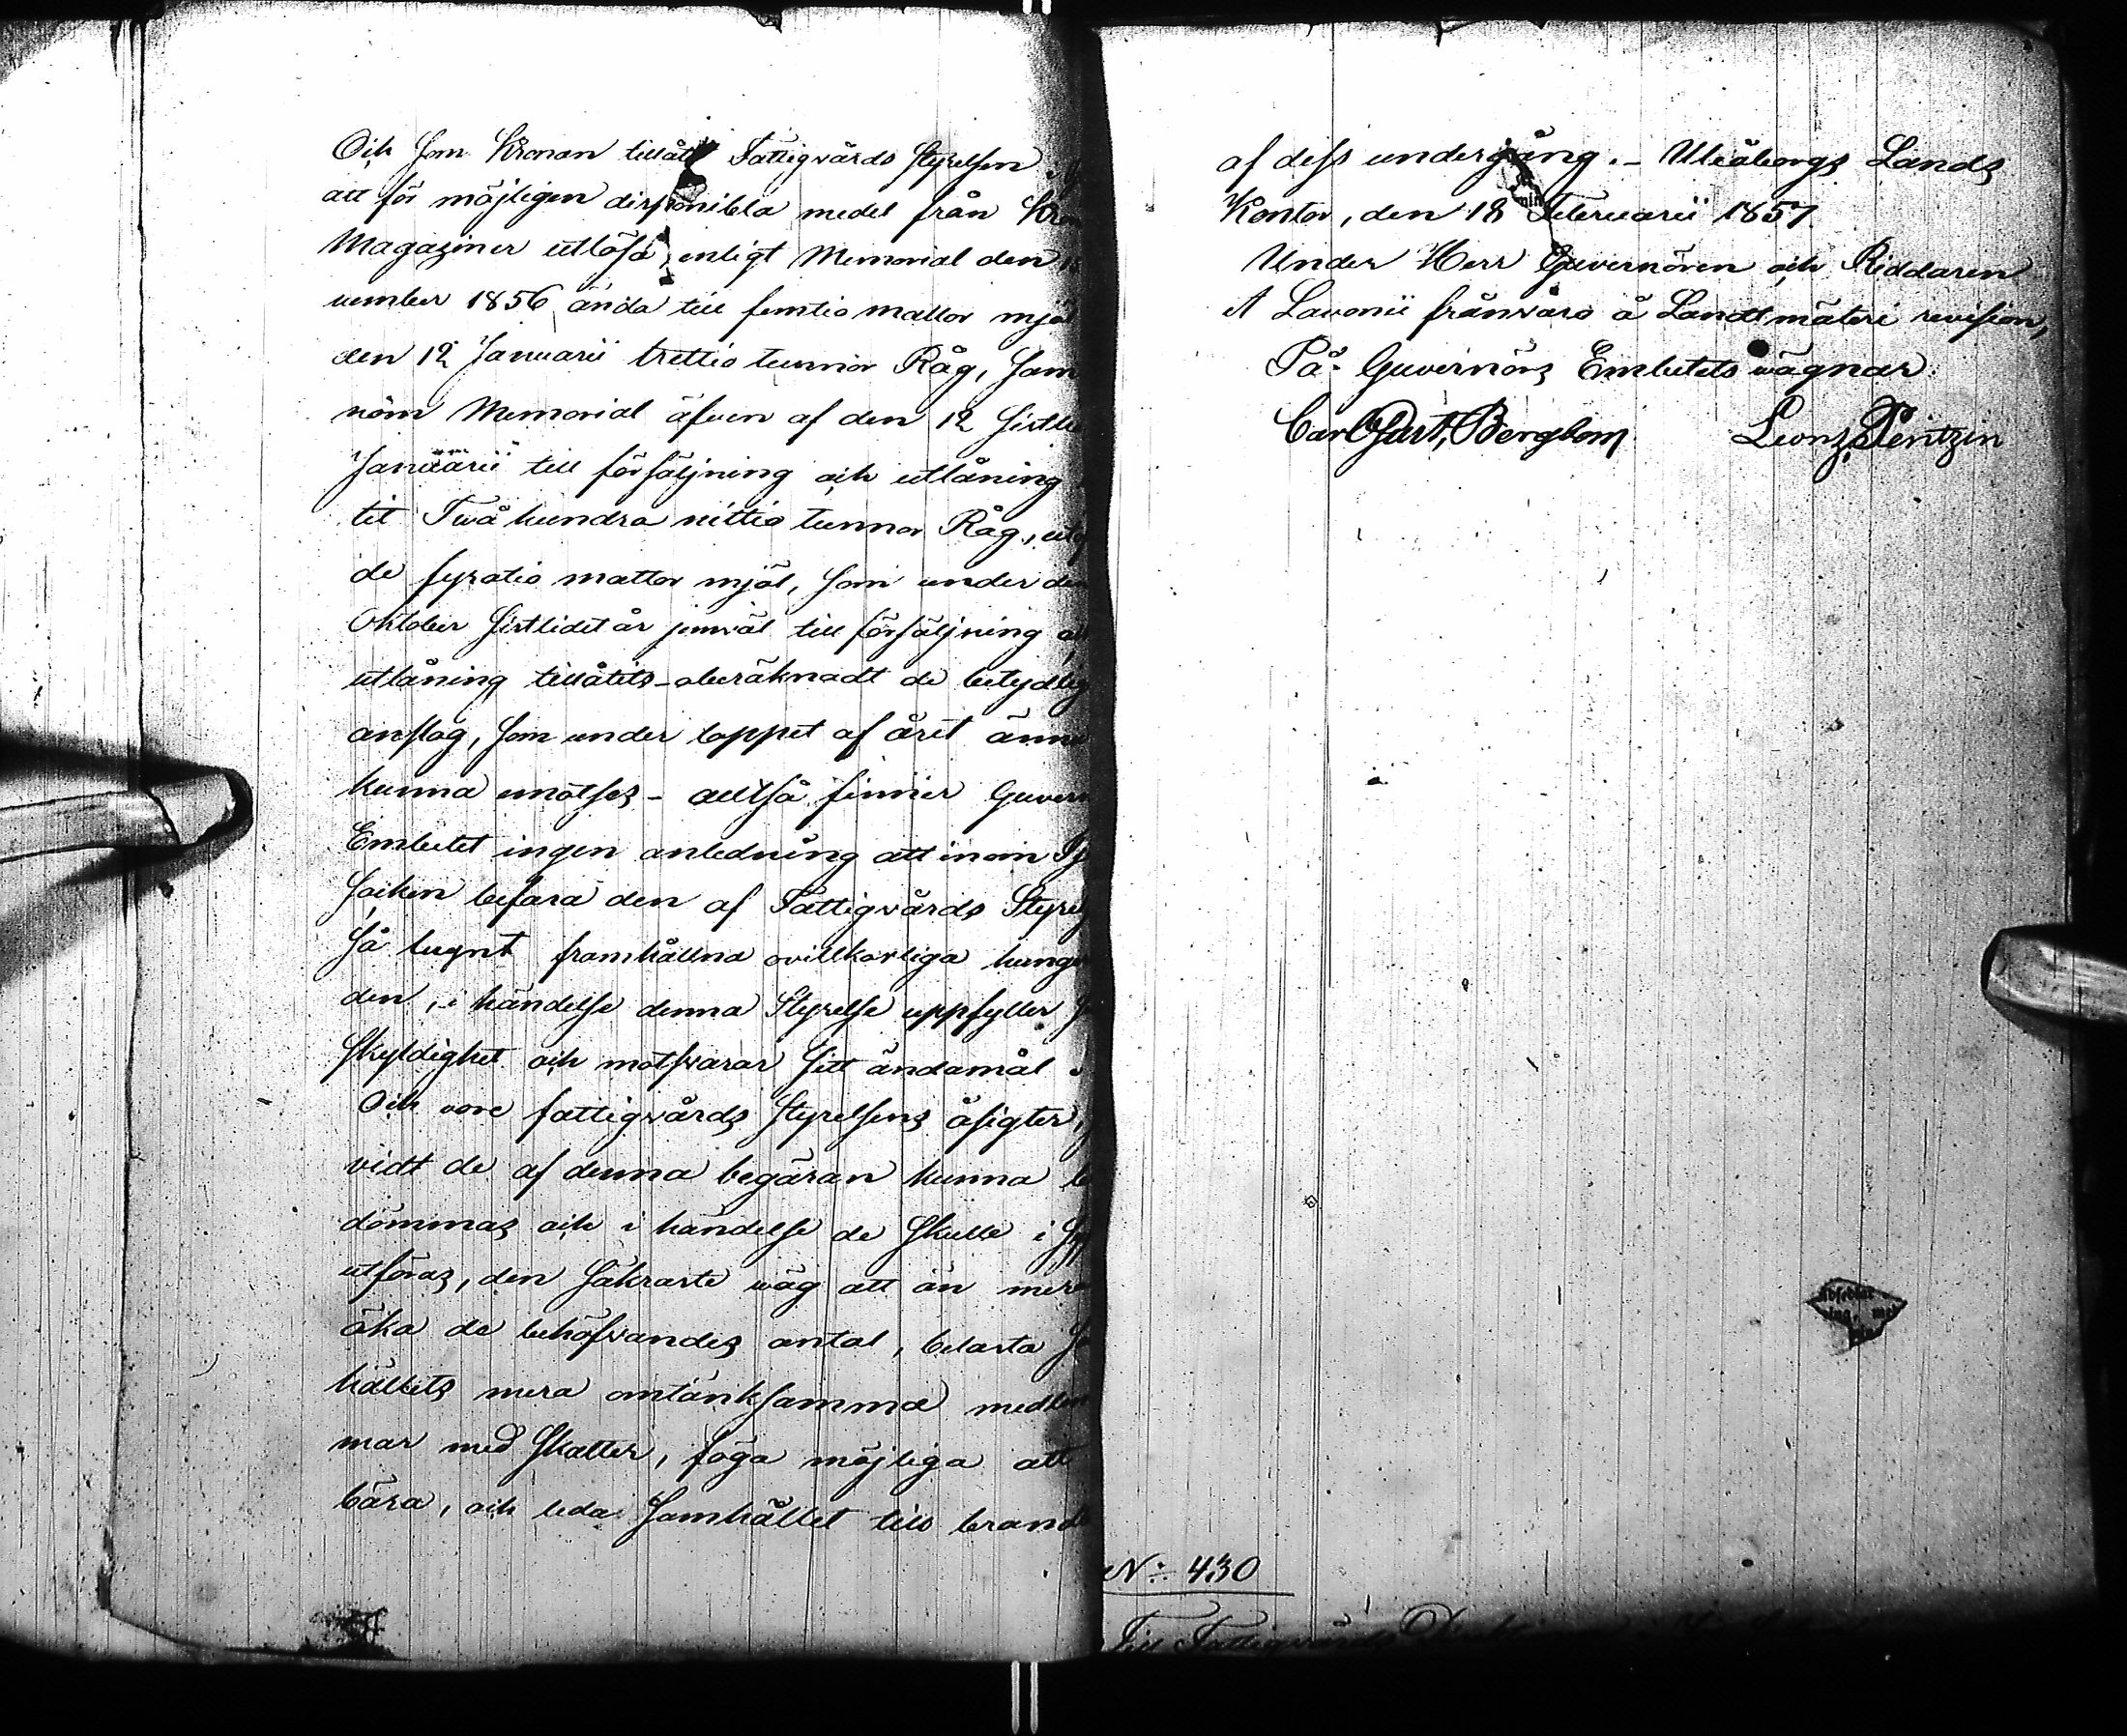 Och som Kronan tillåtit Fattigvårds Styrelsen
att för möjligen disponibla medel från Kro
Magaziner utlösa enligt Memorial den
vember 1856 ända till femtio mattor mjö
den 12 Januarii trettio tunnor Råg, sam
nöm Memorial äfven af den 12 sistle
Januarii till försäljning och utlåning
tit Två hundra nittio tunnor Råg, ut
de fyratio mattor mjöl, som under de
Oktober sistlidet år jemväl till försäljning
utlåning tillåtits - oberäknadt de betydlig
anslag, som under loppet af året ännu
kunna emotses - alltså finner Guver
Embetet ingen anledning att inom
Socken befara den af Fattigvårds Styre
så lugnt framhållna ovillkorliga hunge
den, i händelse denna Styrelse uppfyller
skyldighet och motsvarar sitt ändamål
Och vore fattigvårds styrelsens åsigter,
vidt de af denna begäran kunna
dömmas och i händelse de skulle i
utföras, den säkraste väg att än mera
öka de behöfvandes antal, belasta
hällets mera omtänksamma medlem
mar med skatter, föga möjliga att
bära, och leda Samhället till brand
af dess undergång. - Uleåborgs Lands
Kontor, den 18 Februarii 1857.
Under Herr Guvernören och Riddaren
A Lavonii frånvaro å Landtmäteri revision,
På Guvernörs Embetets vägnar:
Carl Gust. Bergbom Leonz. Pentzin
No 430
Till Fattigvårds